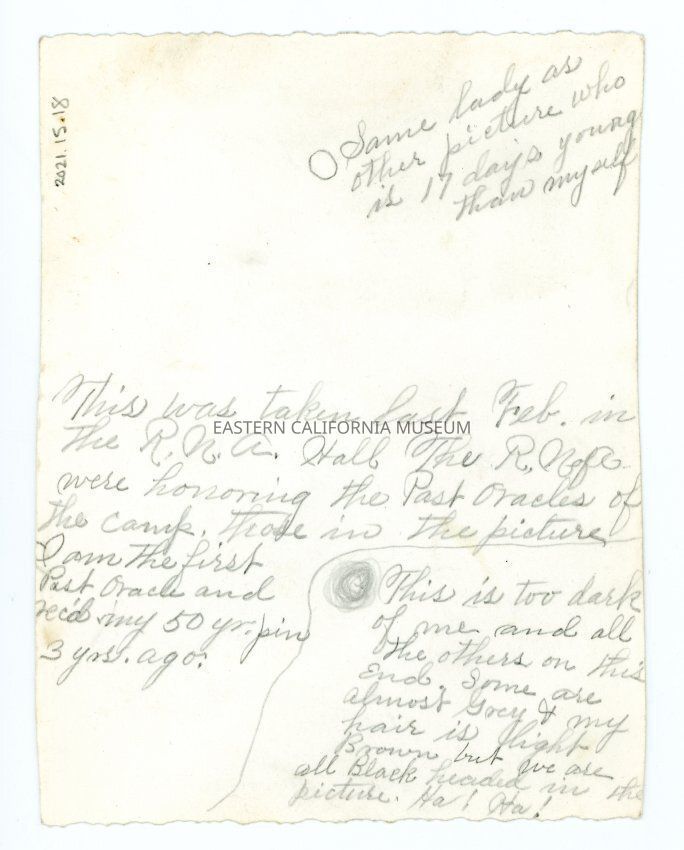 2021.15.18
Same lady as
other picture who
is 17 days young
than myself
This was taken last Feb. in
EASTERN CALIFORNIA MUSEUM
the R.N.A. Hall The R.N. of A
were honoring the Past Oracles of
the camp. those in the picture
I am the first
Past Oracle and
rec'd my 50 yr. pin
3 yrs. ago.
This is too dark
of me and all
the others on this
End. Some are
almost Grey & my
hair is light
Brown but we are
all Black headed in the
picture. Ha! Ha!